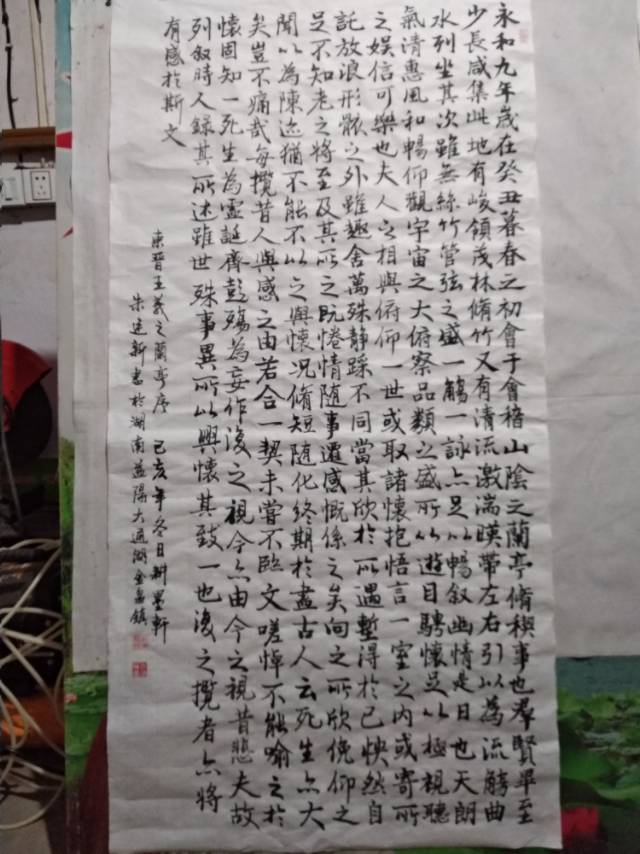 永和九年歲在癸丑暮春之初會于會稽山陰之蘭亭脩稧事也羣賢畢至
少長咸集此地有峻領茂林脩竹又有清流激湍暎帶左右引以為流觴曲
水列坐其次雖無絲竹管弦之盛一觴一詠亦足以暢叙幽情是日也天朗
氣清惠風和暢仰觀宇宙之大俯察品類之盛所以遊目騁懷足以極視聽
之娛信可樂也夫人之相與俯仰一世或取諸懷抱悟言一室之內或寄所
託放浪形骸之外雖趣舍萬殊静躁不同當其欣於所遇蹔得於己怏然自
足不知老之將至及其所之既惓情隨事遷感慨係之矣向之所欣俛仰之
閒以為陳迹猶不能不以之興懷况脩短隨化終期於盡古人云死生亦大
矣豈不痛哉每攬昔人興感之由若合一契未嘗不臨文嗟悼不能喻之於
懷固知一死生為虛誕齊彭殤為妄作後之視今亦由今之視昔悲夫故
列叙時人錄其所述雖世殊事異所以興懷其致一也後之攬者亦將
有感於斯文
東晉王羲之蘭亭序 己亥年冬日耕墨軒
朱建新書於湖南益陽大通湖金盆鎮